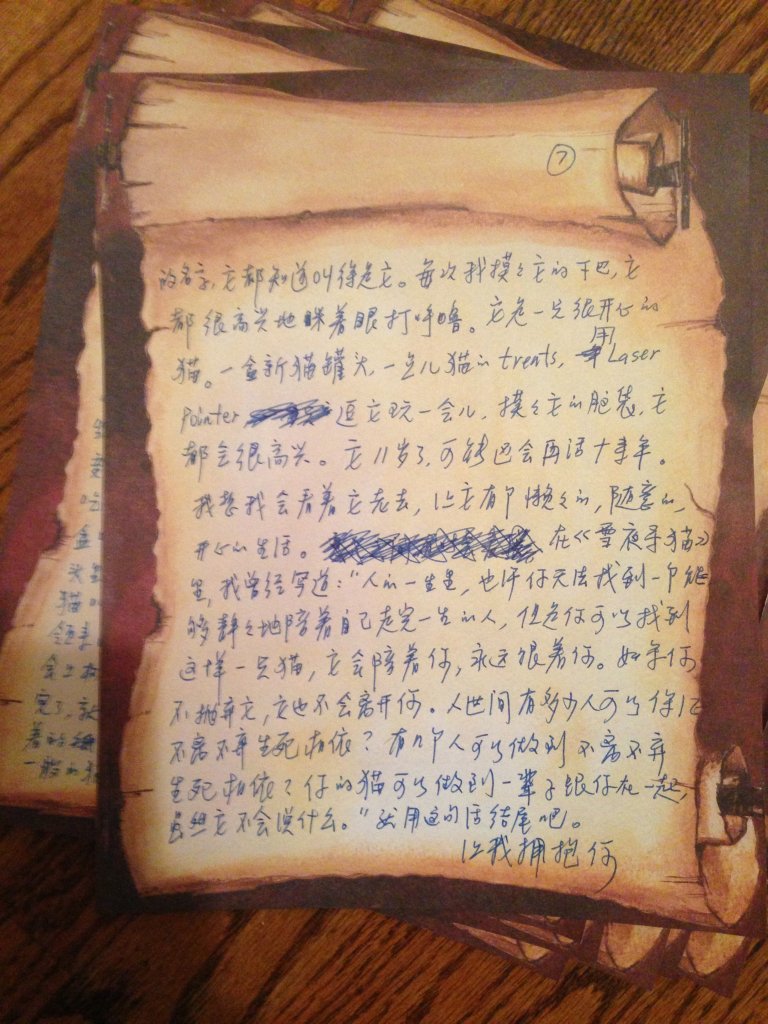 ⑦
的名字，它都知道叫的是它。每次我摸摸它的下巴，它
都很高兴地眯着眼打呼噜。它是一只很开心的
猫。一盒新猫罐头，一点儿猫的treats，用Laser
Pointer 逗它玩一会儿，摸摸它的脸袋，它
都会很高兴。它11岁了，可能也会再活十来年。
我想我会看着它老去，让它有个懒懒的，随意的，
开心的生活。在《雪夜寻猫》
里，我曾经写道：“人的一生里，也许你无法找到一个能
够静静地陪着自己走完一生的人，但是你可以找到
这样一只猫，它会陪着你，永远跟着你。如果你
不抛弃它，它也不会离开你。人世间有多少人可以保证
不离不弃生死相依？有几个人可以做到不离不弃
生死相依？你的猫可以做到一辈子跟你在一起，
虽然它不会说什么。”就用这句话结尾吧。
让我拥抱你
猫
领
会上
完了，就
着的
一般的猫